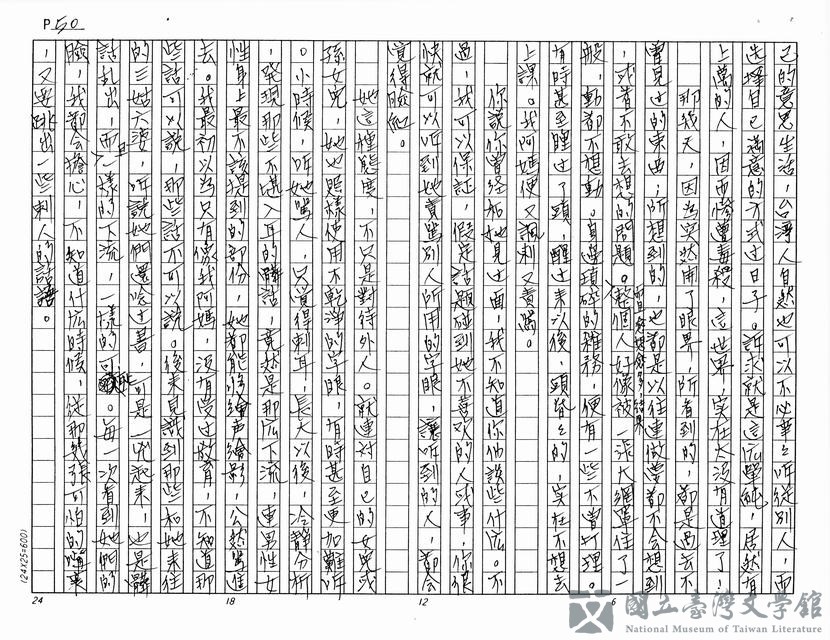 P50
己的意思生活，台灣人自然也可以不必事事听從別人，而
选擇自己滿意的方式过日子。訴求就是這么單純，居然有
上萬的人，因而慘遭毒殺，這世界，实在太沒有道理了！
那幾天，因為突然開了眼界，所看到的，都是過去不
曾見过的東西；所想到的，也都是以往連做夢都不会想到
，或者不敢去想的問題。而且經想越多，結果整個人好像被一張大網單住了一
般，動都不想動。身邊瑣碎的雜務，便有一些不曾打理。
有時甚至睡过了頭，醒过来以後，頭昏昏的，实在不想去
上課。我阿媽便又諷刺又責罵。
你說你曾经和她見过面，我不知道你们談些什広。不
過，我可以保証，假定話題碰到她不喜欢的人或事，你很
快就可以听到她責罵別人所用的字眼，讓听到的人，都会
覚得臉紅。
她這種態度，不只是對待外人。就連对自己的女兒或
孫女兒，她也照樣使用不乾淨的字眼，有時甚至更加難听
。小時候，听她罵人，只覚得刺耳，長大以後，冷静分析
，発現那些不堪入耳的髒話，竟然是那広下流，連男性女
性身上最不該提到的部份，她都能够繪声繪影，公然罵進
去。我最初以為只有像我阿媽，沒有受过教育，不知道那
些話可以說，那些話不可以說。後来見識到那些和她来往
的三姑六婆，听說她們還唸过書，可是一兇起来，也是髒
話乱出，而且一樣的下流，一樣的可能。每一次看到她們的
臉，我都会擔心，不知道什広時候，從那幾張可怕的嘴裏
，又要跳出一些刺人的話語。
(24X25=600)
24
18
12
6
國立臺灣文學館
National Museum of Taiwan Literature